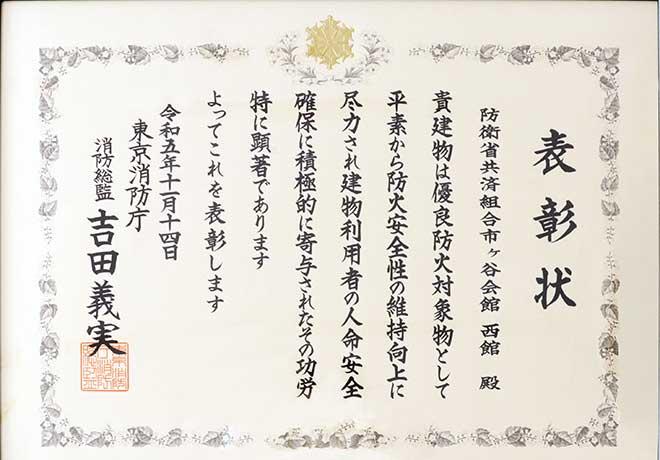 表彰状
防衛省共済組合市ヶ谷会館 西館 殿
貴建物は優良防火対象物として
平素から防火安全性の維持向上に
尽力され建物利用者の人命安全
確保に積極的に寄与されたその功労
特に顕著であります
よってこれを表彰します
令和五年十一月十四日
東京消防庁
消防総監 吉田義実